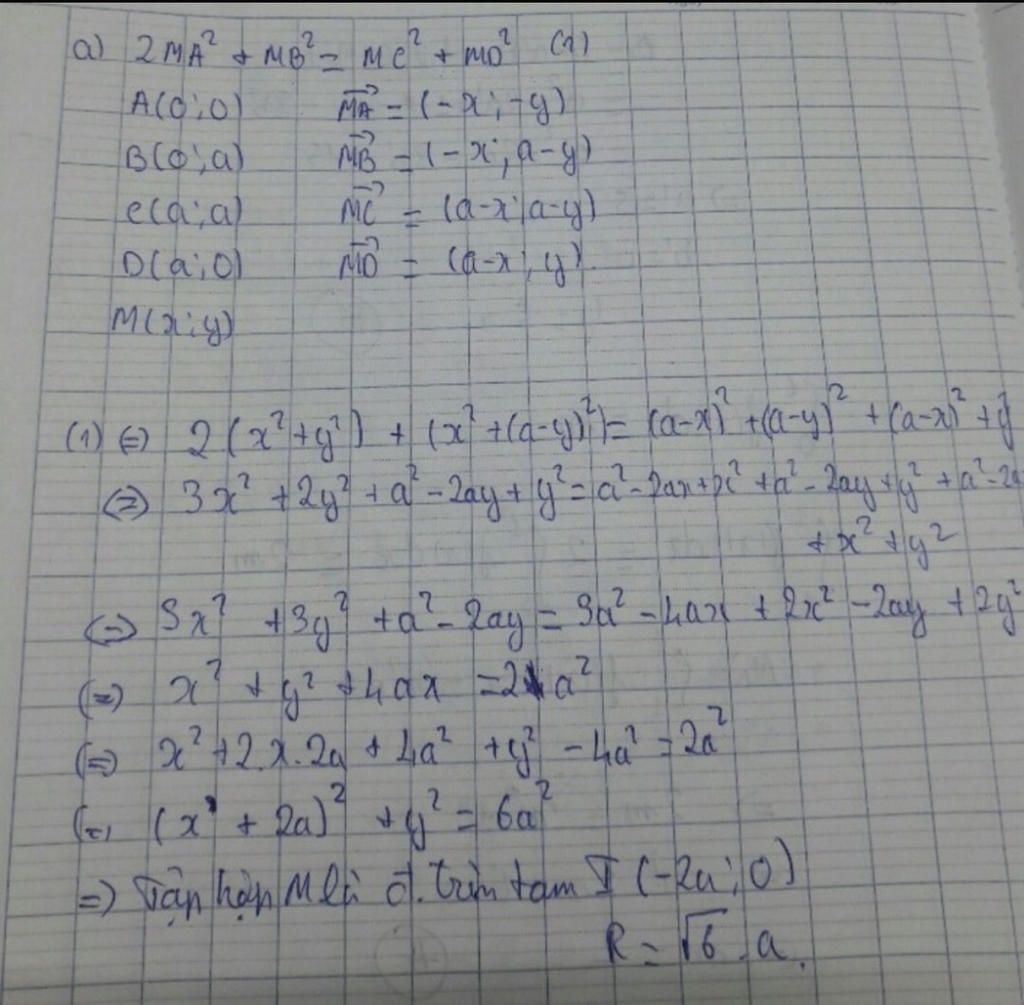 a) 2MA² + MB² = MC² + MD² (1)
A(0;0) \overrightarrow{MA} = (-x; -y)
B(0;a) \overrightarrow{MB} = (-x; a-y)
C(a;a) \overrightarrow{MC} = (a-x; a-y)
D(a;0) \overrightarrow{MD} = (a-x; y)
M(x;y)
(1) ⇔ 2(x²+y²) + (x²+(a-y)²) = (a-x)² + (a-y)² + (a-x)² + y²
⇔ 3x² + 2y² + a² - 2ay + y² = a² - 2ax + x² + a² - 2ay + y² + a² - 2a
+ x² + y²
⇔ 3x² + 3y² + a² - 2ay = 3a² - 4ax + 2x² - 2ay + 2y²
⇔ x² + y² + 4ax = 2a²
⇔ x² + 2.x.2a + 4a² + y² - 4a² = 2a²
⇔ (x + 2a)² + y² = 6a²
⇒ Tập hợp M là đ. tròn tâm I (-2a; 0)
R = √6 a.